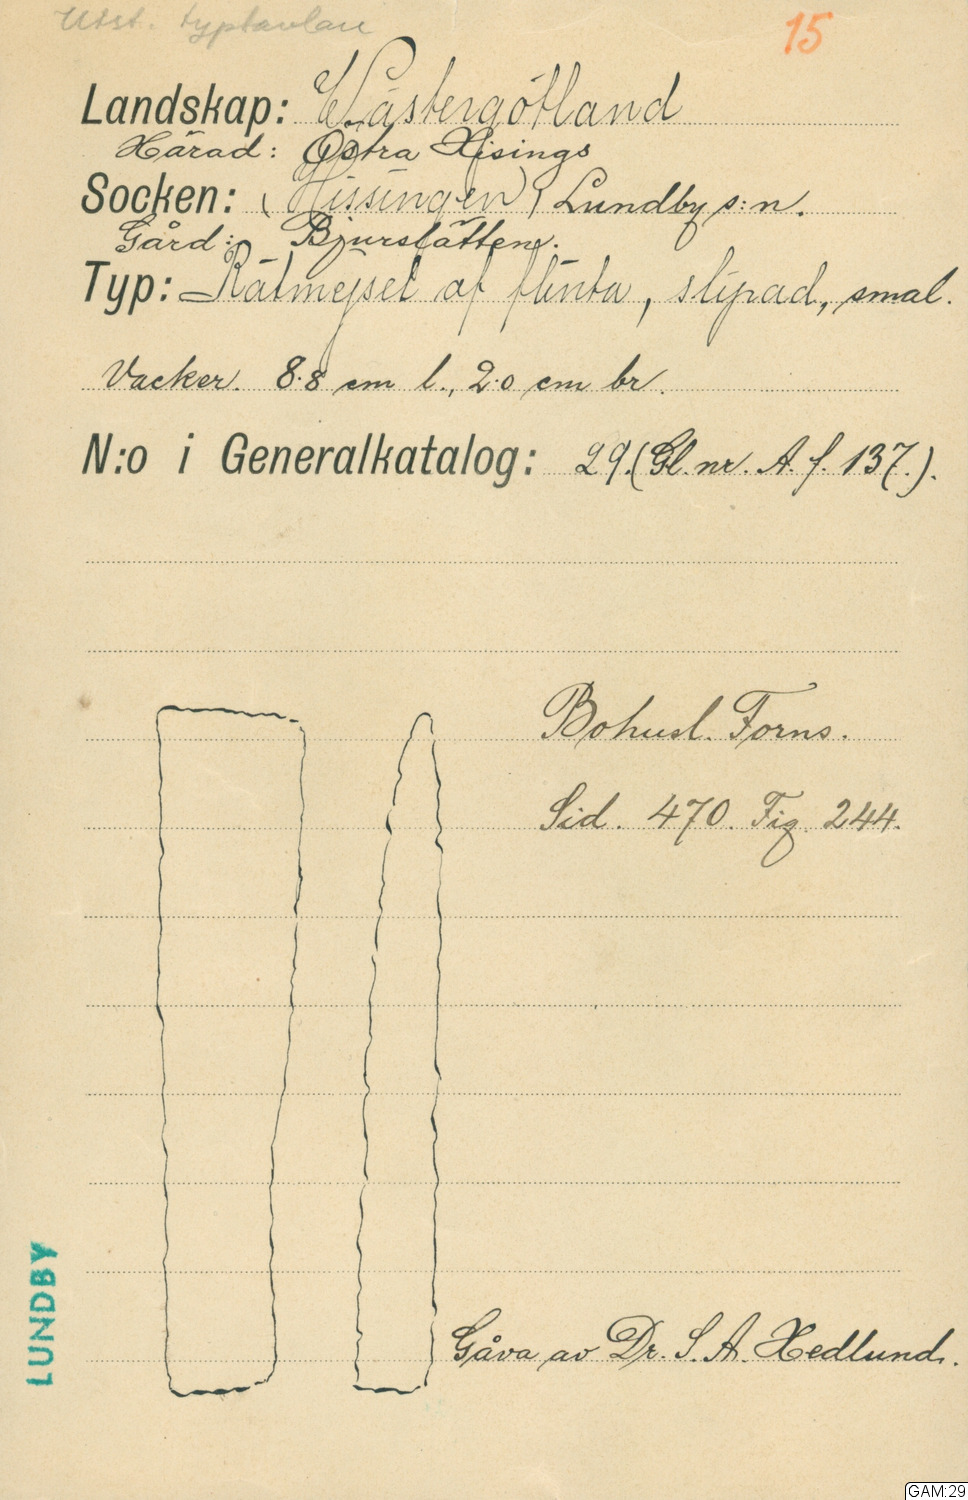 Utst. typtavlan
15
Landskap: Västergötland
Härad: Östra Hisings
Socken: (Hissingen) Lundby s:n.
Gård: Bjurslätten.
Typ: Rätmejsel af flinta, slipad, smal.
Vacker. 8.8 cm l., 2.0 cm br.
N:o i Generalkatalog: 29. (Gl. nr. A. f. 137.).
Bohusl. Forns.
Sid. 470. Fig. 244.
LUNDBY
Gåva av Dr. S. A. Hedlund.
GAM:29